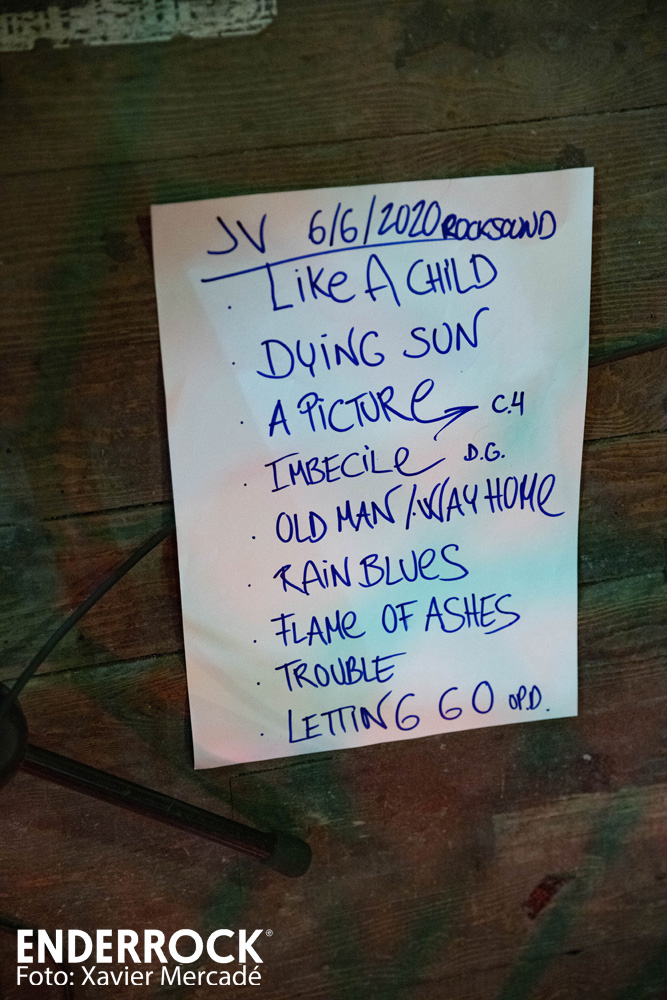 JV 6/6/2020 ROCKSOUND
· LIKE A CHILD
· DYING SUN
· A PICTURE → C.4
· IMBECILE D.G.
· OLD MAN / WAY HOME
· RAIN BLUES
· FLAME OF ASHES
· TROUBLE
· LETTING GO OP.D.
ENDERROCK®
Foto: Xavier Mercadé